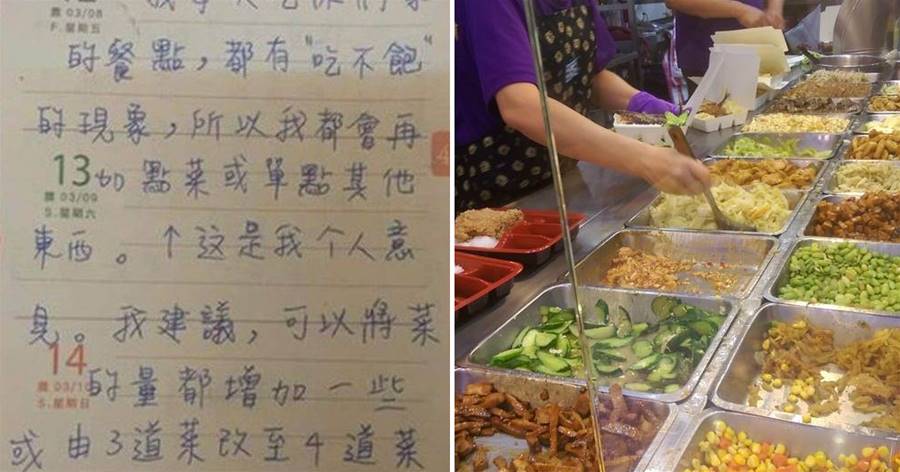 農 03/08
F. 星期五
的餐點，都有"吃不飽"
的現象，所以我都會再
13
加點菜或單點其他
農 03/09
S. 星期六
東西。↑这是我个人意
見。我建議，可以將菜
14
農 03/10
的量都增加一些
S. 星期日
或由3道菜改至4道菜
4